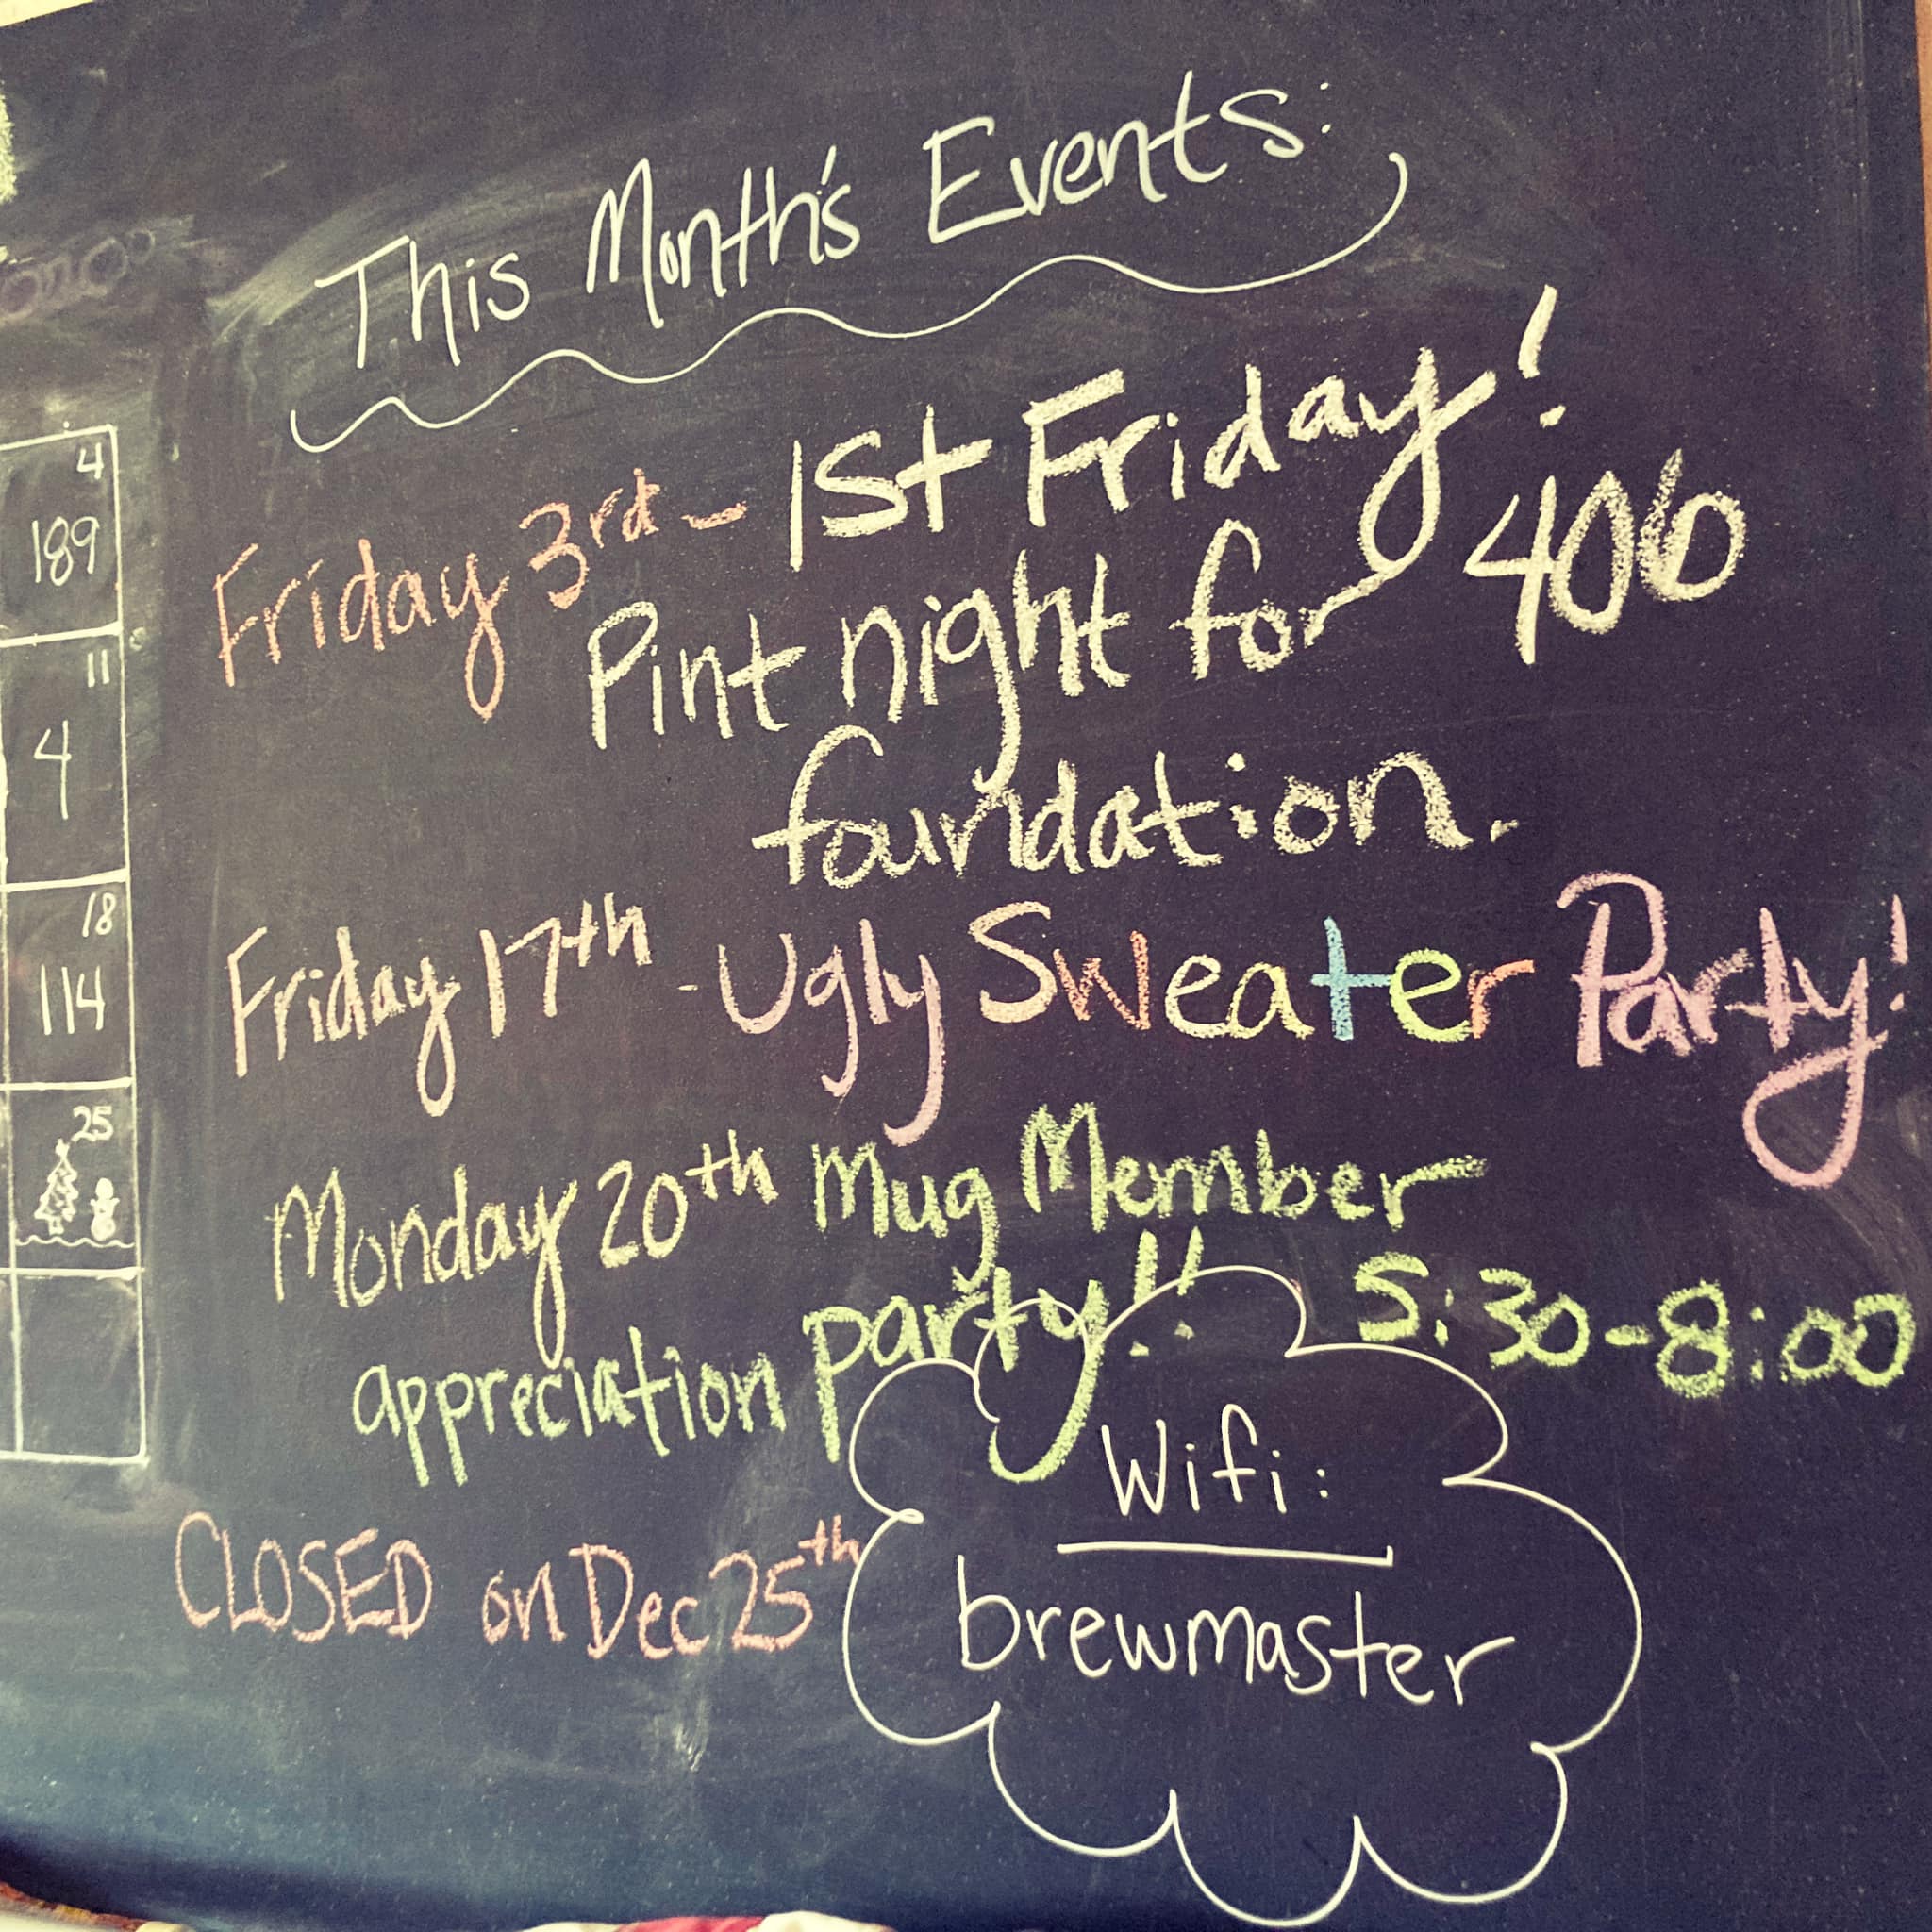 This Month's Events:
Friday 3rd - 1st Friday!
Pint night for 406
foundation.
Friday 17th - Ugly Sweater Party!
Monday 20th Mug Member
appreciation party!! 5:30-8:00
CLOSED on Dec 25th
Wifi:
brewmaster
4
189
11
4
18
114
25